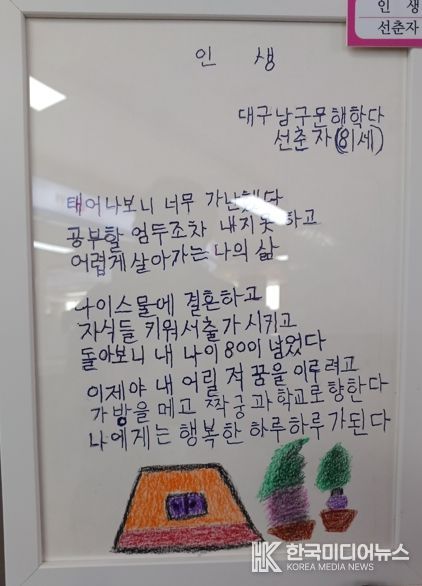 인 생
선춘자
인 생
대구남구문해학다
선춘자(81세)
태어나보니 너무 가난했다
공부할 엄두조차 내지못하고
어렵게살아가는 나의 삶
나이스물에 결혼하고
자식들 키워서출가시키고
돌아보니 내 나이80이넘었다
이제야 내 어릴 적 꿈을 이루려고
가방을 메고 짝궁과학교로향한다
나에게는 행복한 하루하루가된다
한국미디어뉴스
KOREA MEDIA NEWS